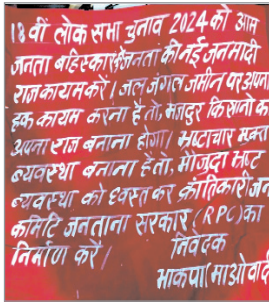 18 वीं लोक सभा चुनाव 2024 को आम
जनता बहिस्कार जनता की नई जनमादी
राज कायम करें। जल जंगल जमीन पर अपना
हक कायम करना है तो, मजदुर किसानो का
अपना राज बनाना होगा। भ्रष्टाचार मुक्त
ब्यवस्था बनाना है तो, मौजुदा भ्रष्ट
ब्यवस्था को ध्वस्त कर क्रांतिकारी जन
कमिटि जनताना सरकार (RPC) का
निर्माण करें। निवेदक
भाकपा (माओवादी